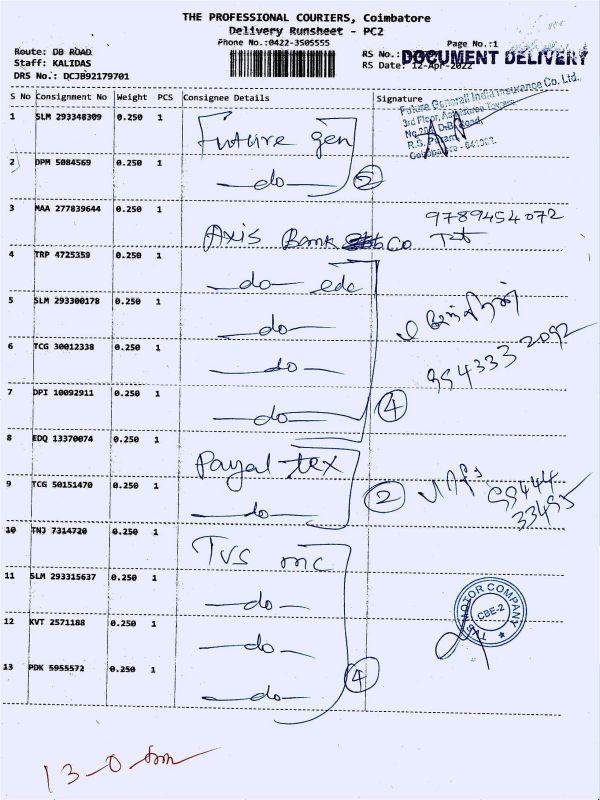 THE PROFESSIONAL COURIERS, Coimbatore
Delivery Runsheet - PC2
Phone No.:0422-3505555
Page No.:1
Route: DB ROAD
RS No.:
DOCUMENT DELIVERY
Staff: KALIDAS
RS Date: 12-Apr-2022
DRS No.: DCJB92179701
S No Consignment No Weight PCS Consignee Details Signature
Future Generali India Insurance Co. Ltd.
3rd Floor,
R.S. Puram,
Coimbatore - 641002.
1 SLM 293348309 0.250 1 Future gen
2 DPM 5084569 0.250 1 —do—
3 MAA 277839644 0.250 1 Axis Bank Co 9789454072
4 TRP 4725359 0.250 1 —do— edc
5 SLM 293300178 0.250 1 —do—
6 TCG 30012338 0.250 1 —do— 954333 2092
7 DPI 10092911 0.250 1 —do— 4
8 EDQ 13370074 0.250 1 Payal tex
9 TCG 50151470 0.250 1 —do— 2
33495
10 TNJ 7314720 0.250 1 TVS mc
11 SLM 293315637 0.250 1 —do—
12 KVT 2571188 0.250 1 —do—
13 PDK 5955572 0.250 1 —do— 4
TVS MOTOR COMPANY
CBE-2